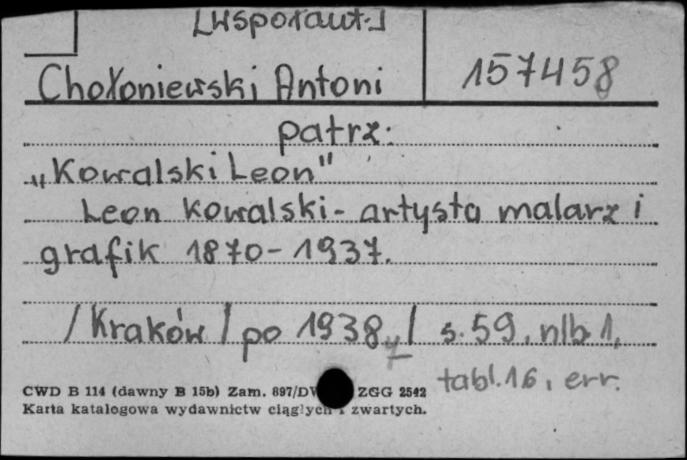 [współaut.]
Chołoniewski Antoni 157458
patrz:
„Kowalski Leon"
Leon Kowalski - artysta malarz i
grafik 1870-1937.
/Kraków/ po 1938,/ s. 59, nlb 1,
tabl. 16, err.
CWD B 114 (dawny B 15b) Zam. 897/DW ZGG 2542
Karta katalogowa wydawnictw ciągłych i zwartych.